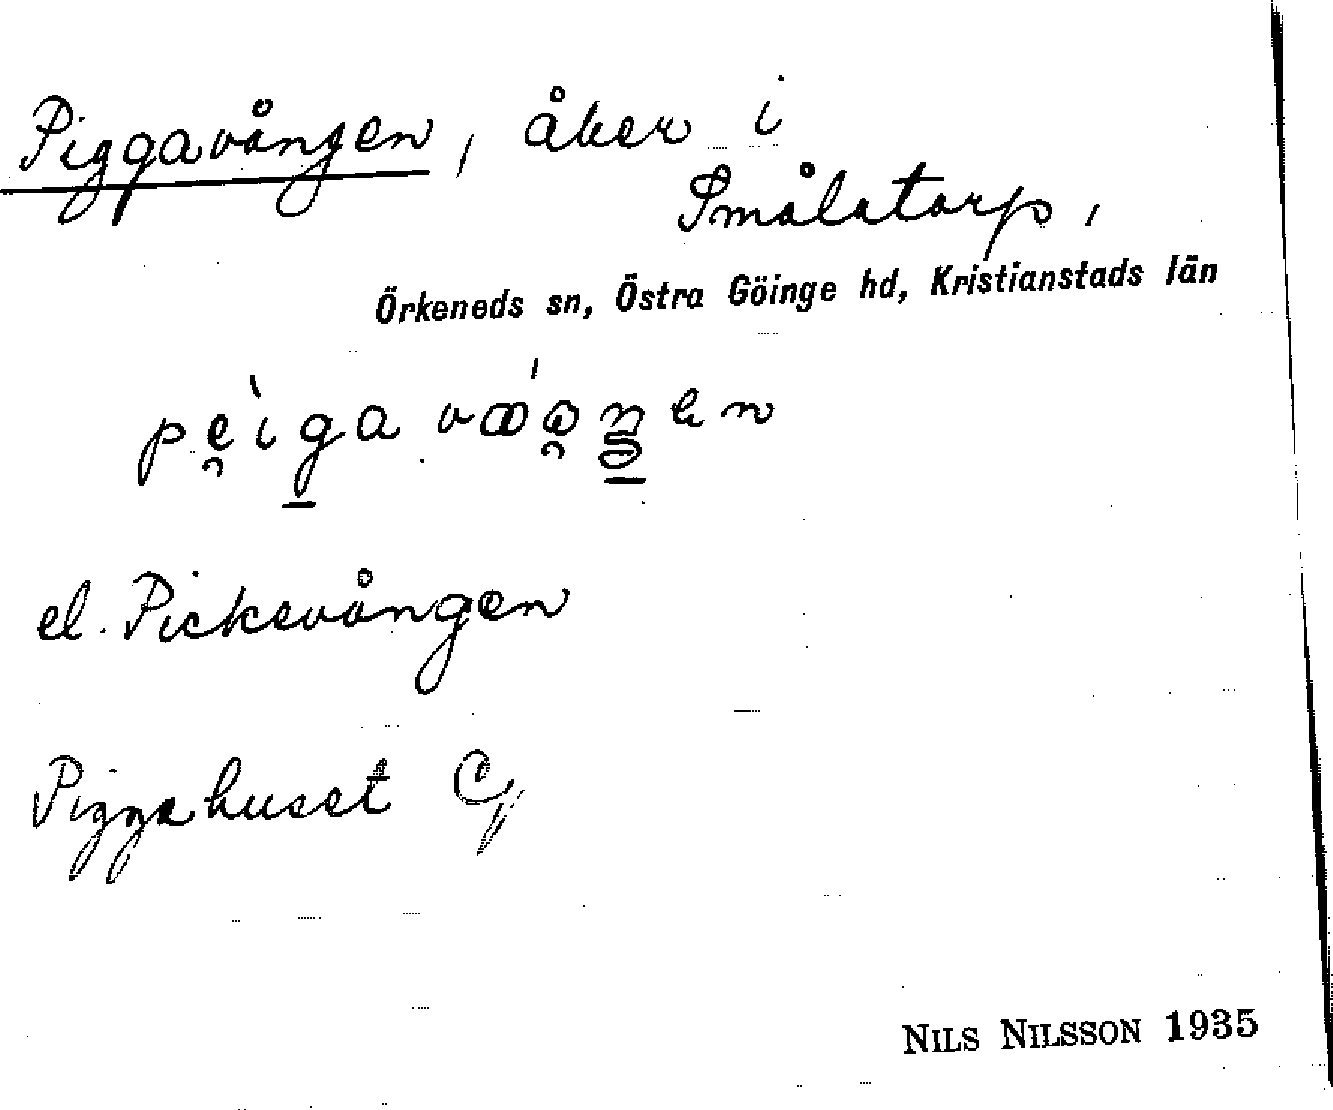 Piggavången, åker i
Smålatorp,
Örkeneds sn, Östra Göinge hd, Kristianstads län
pe̯ìga væ´o̯ŋen
el. Pickevången
Piggahuset
NILS NILSSON 1935